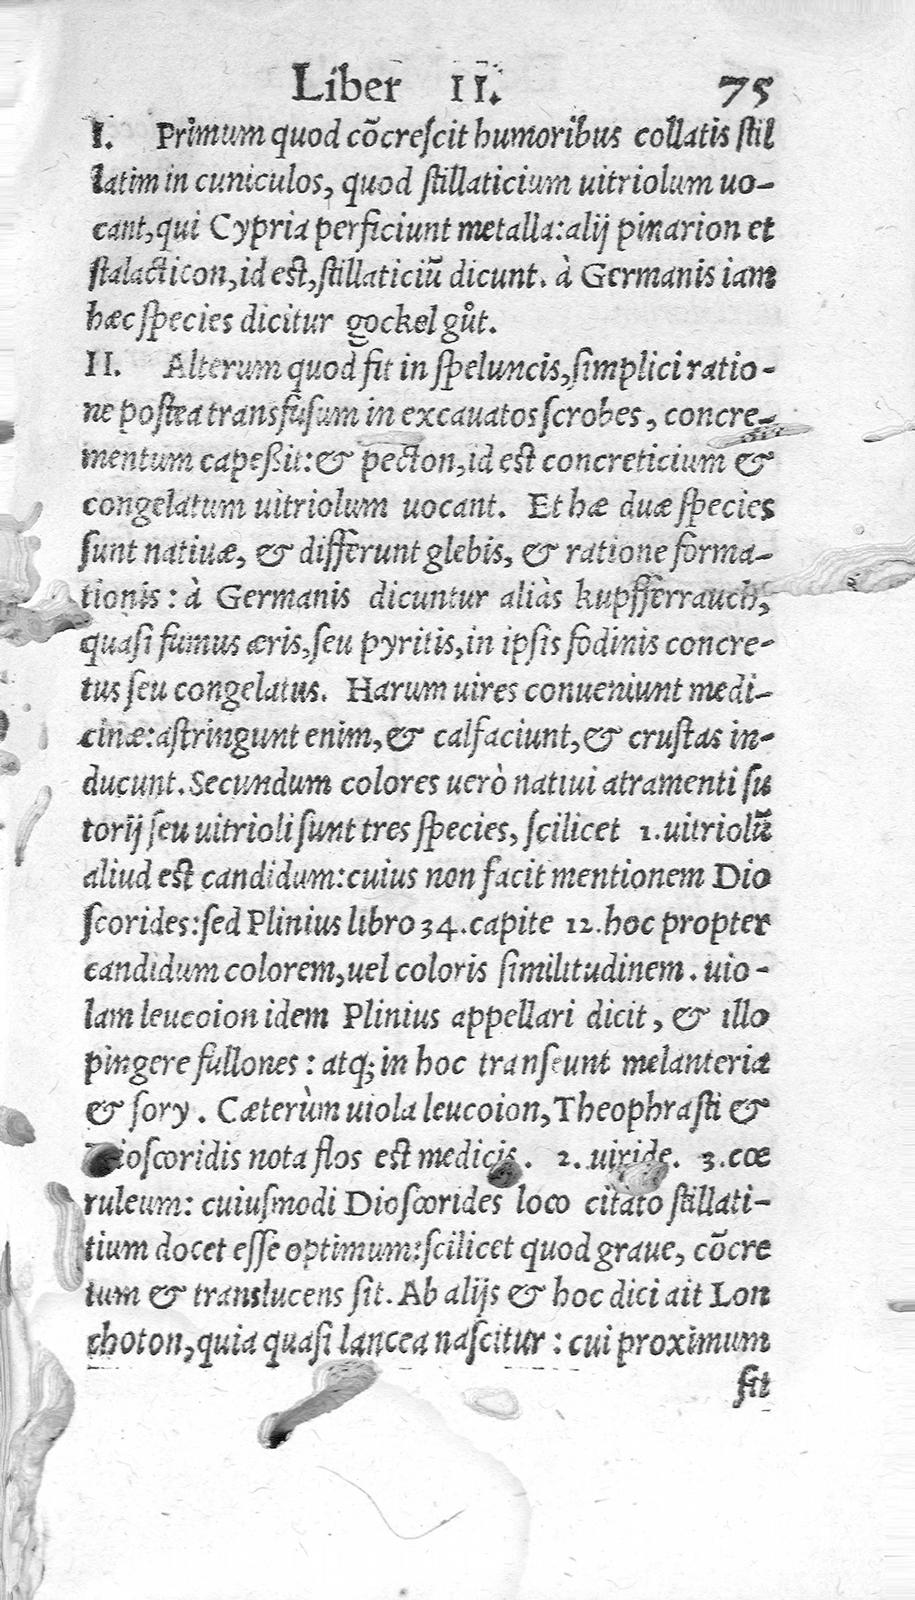 Liber II. 75
I. Primum quod cõcreſcit humoribus collatis ſtil
latim in cuniculos, quod ſtillaticium uitriolum uo-
cant, qui Cypria perficiunt metalla: alij pinarion et
ſtalacticon, id eſt, ſtillaticiũ dicunt. à Germanis iam
hæc ſpecies dicitur gockelgůt.
II. Alterum quod fit in ſpeluncis, ſimplici ratio-
ne poſtea transfuſum in excauatos ſcrobes, concre-
mentum capeßit: & pecton, id eſt concreticium &
congelatum uitriolum uocant. Et hæ duæ ſpecies
ſunt natiuæ, & differunt glebis, & ratione forma-
tionis: à Germanis dicuntur aliàs kupfferrauch,
quaſi fumus æris, ſeu pyritis, in ipſis fodinis concre-
tus ſeu congelatus. Harum uires conueniunt medi-
cinæ: aſtringunt enim, & calfaciunt, & cruſtas in-
ducunt. Secundum colores uerò natiui atramenti ſu
torij ſeu uitrioli ſunt tres ſpecies, ſcilicet 1. uitriolũ
aliud eſt candidum: cuius non facit mentionem Dio
ſcorides: ſed Plinius libro 34. capite 12. hoc propter
candidum colorem, uel coloris ſimilitudinem. uio-
lam leucoion idem Plinius appellari dicit, & illo
pingere fullones: atq; in hoc tranſeunt melanteria
& ſory. Cæterùm uiola leucoion, Theophraſti &
Dioſcoridis nota flos eſt medicis. 2. uiride. 3. cœ
ruleum: cuiuſmodi Dioſcorides loco citato ſtillati-
tium docet eſſe optimum: ſcilicet quod graue, cõcre
tum & translucens ſit. Ab alijs & hoc dici ait Lon
choton, quia quaſi lancea naſcitur: cui proximum
ſit